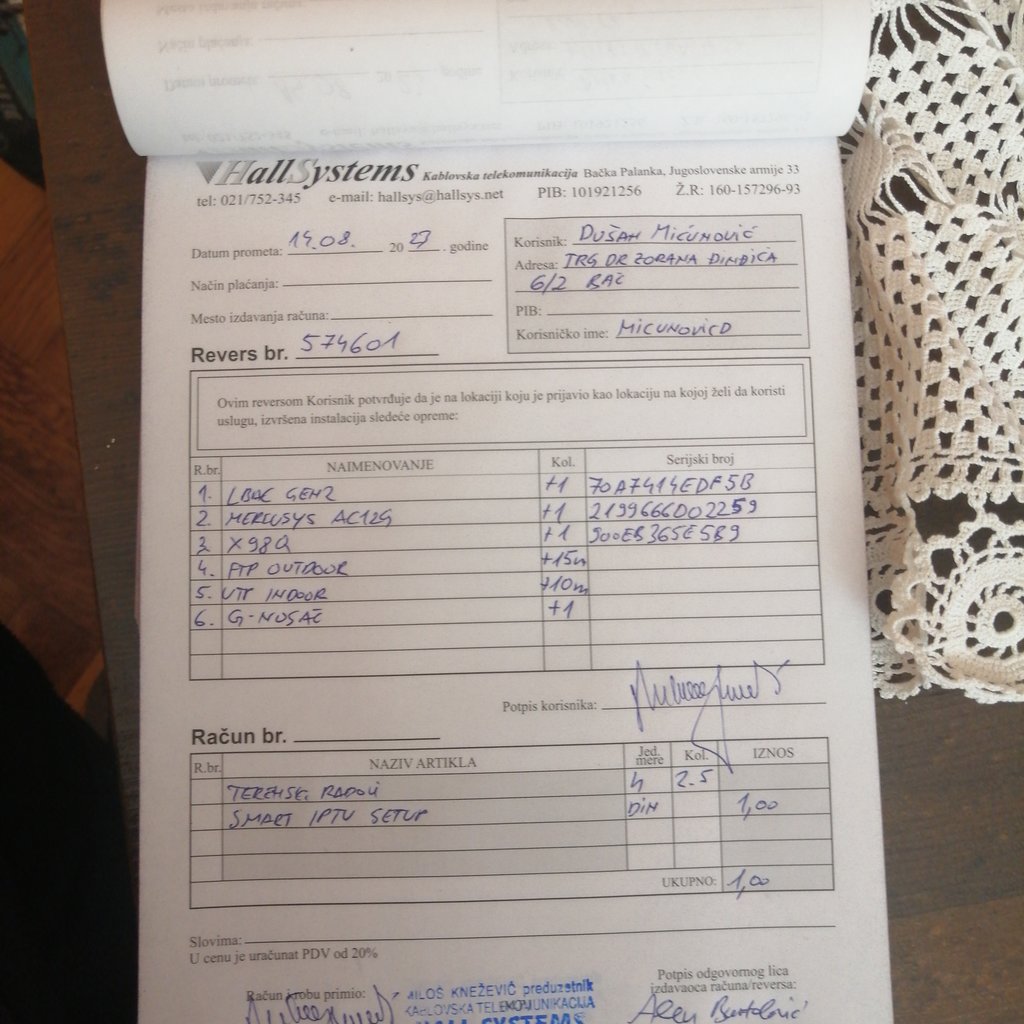 HallSystems Kablovska telekomunikacija Bačka Palanka, Jugoslovenske armije 33
tel: 021/752-345 e-mail: hallsys@hallsys.net PIB: 101921256 Ž.R: 160-157296-93
Datum prometa: 14.08. 20 23. godine
Način plaćanja:
Mesto izdavanja računa:
Revers br. 574601
Korisnik: DUŠAN MIĆUNOVIĆ
Adresa: TRG DR ZORANA ĐINĐIĆA
6/2 BAČ
PIB:
Korisničko ime: MICUNOVICD
Ovim reversom Korisnik potvrđuje da je na lokaciji koju je prijavio kao lokaciju na kojoj želi da koristi
uslugu, izvršena instalacija sledeće opreme:
R.br. NAIMENOVANJE Kol. Serijski broj
1. LBAC GEN2 +1 70A7414EDF5B
2. MERCUSYS AC12G +1 2199666D02259
3. X98Q +1 900EB365E5B9
4. FTP OUTDOOR +15m
5. UTP INDOOR +10m
6. G-NOSAČ +1
Potpis korisnika:
Račun br.
R.br. NAZIV ARTIKLA Jed. mere Kol. IZNOS
TERENSKI RADOVI h 2.5
SMART IPTV SETUP DIN 1,00
UKUPNO: 1,00
Slovima:
U cenu je uračunat PDV od 20%
Račun i robu primio:
MILOŠ KNEŽEVIĆ preduzetnik
KABLOVSKA TELEKOMUNIKACIJA
HALL SYSTEMS
Potpis odgovornog lica
izdavaoca računa/reversa: